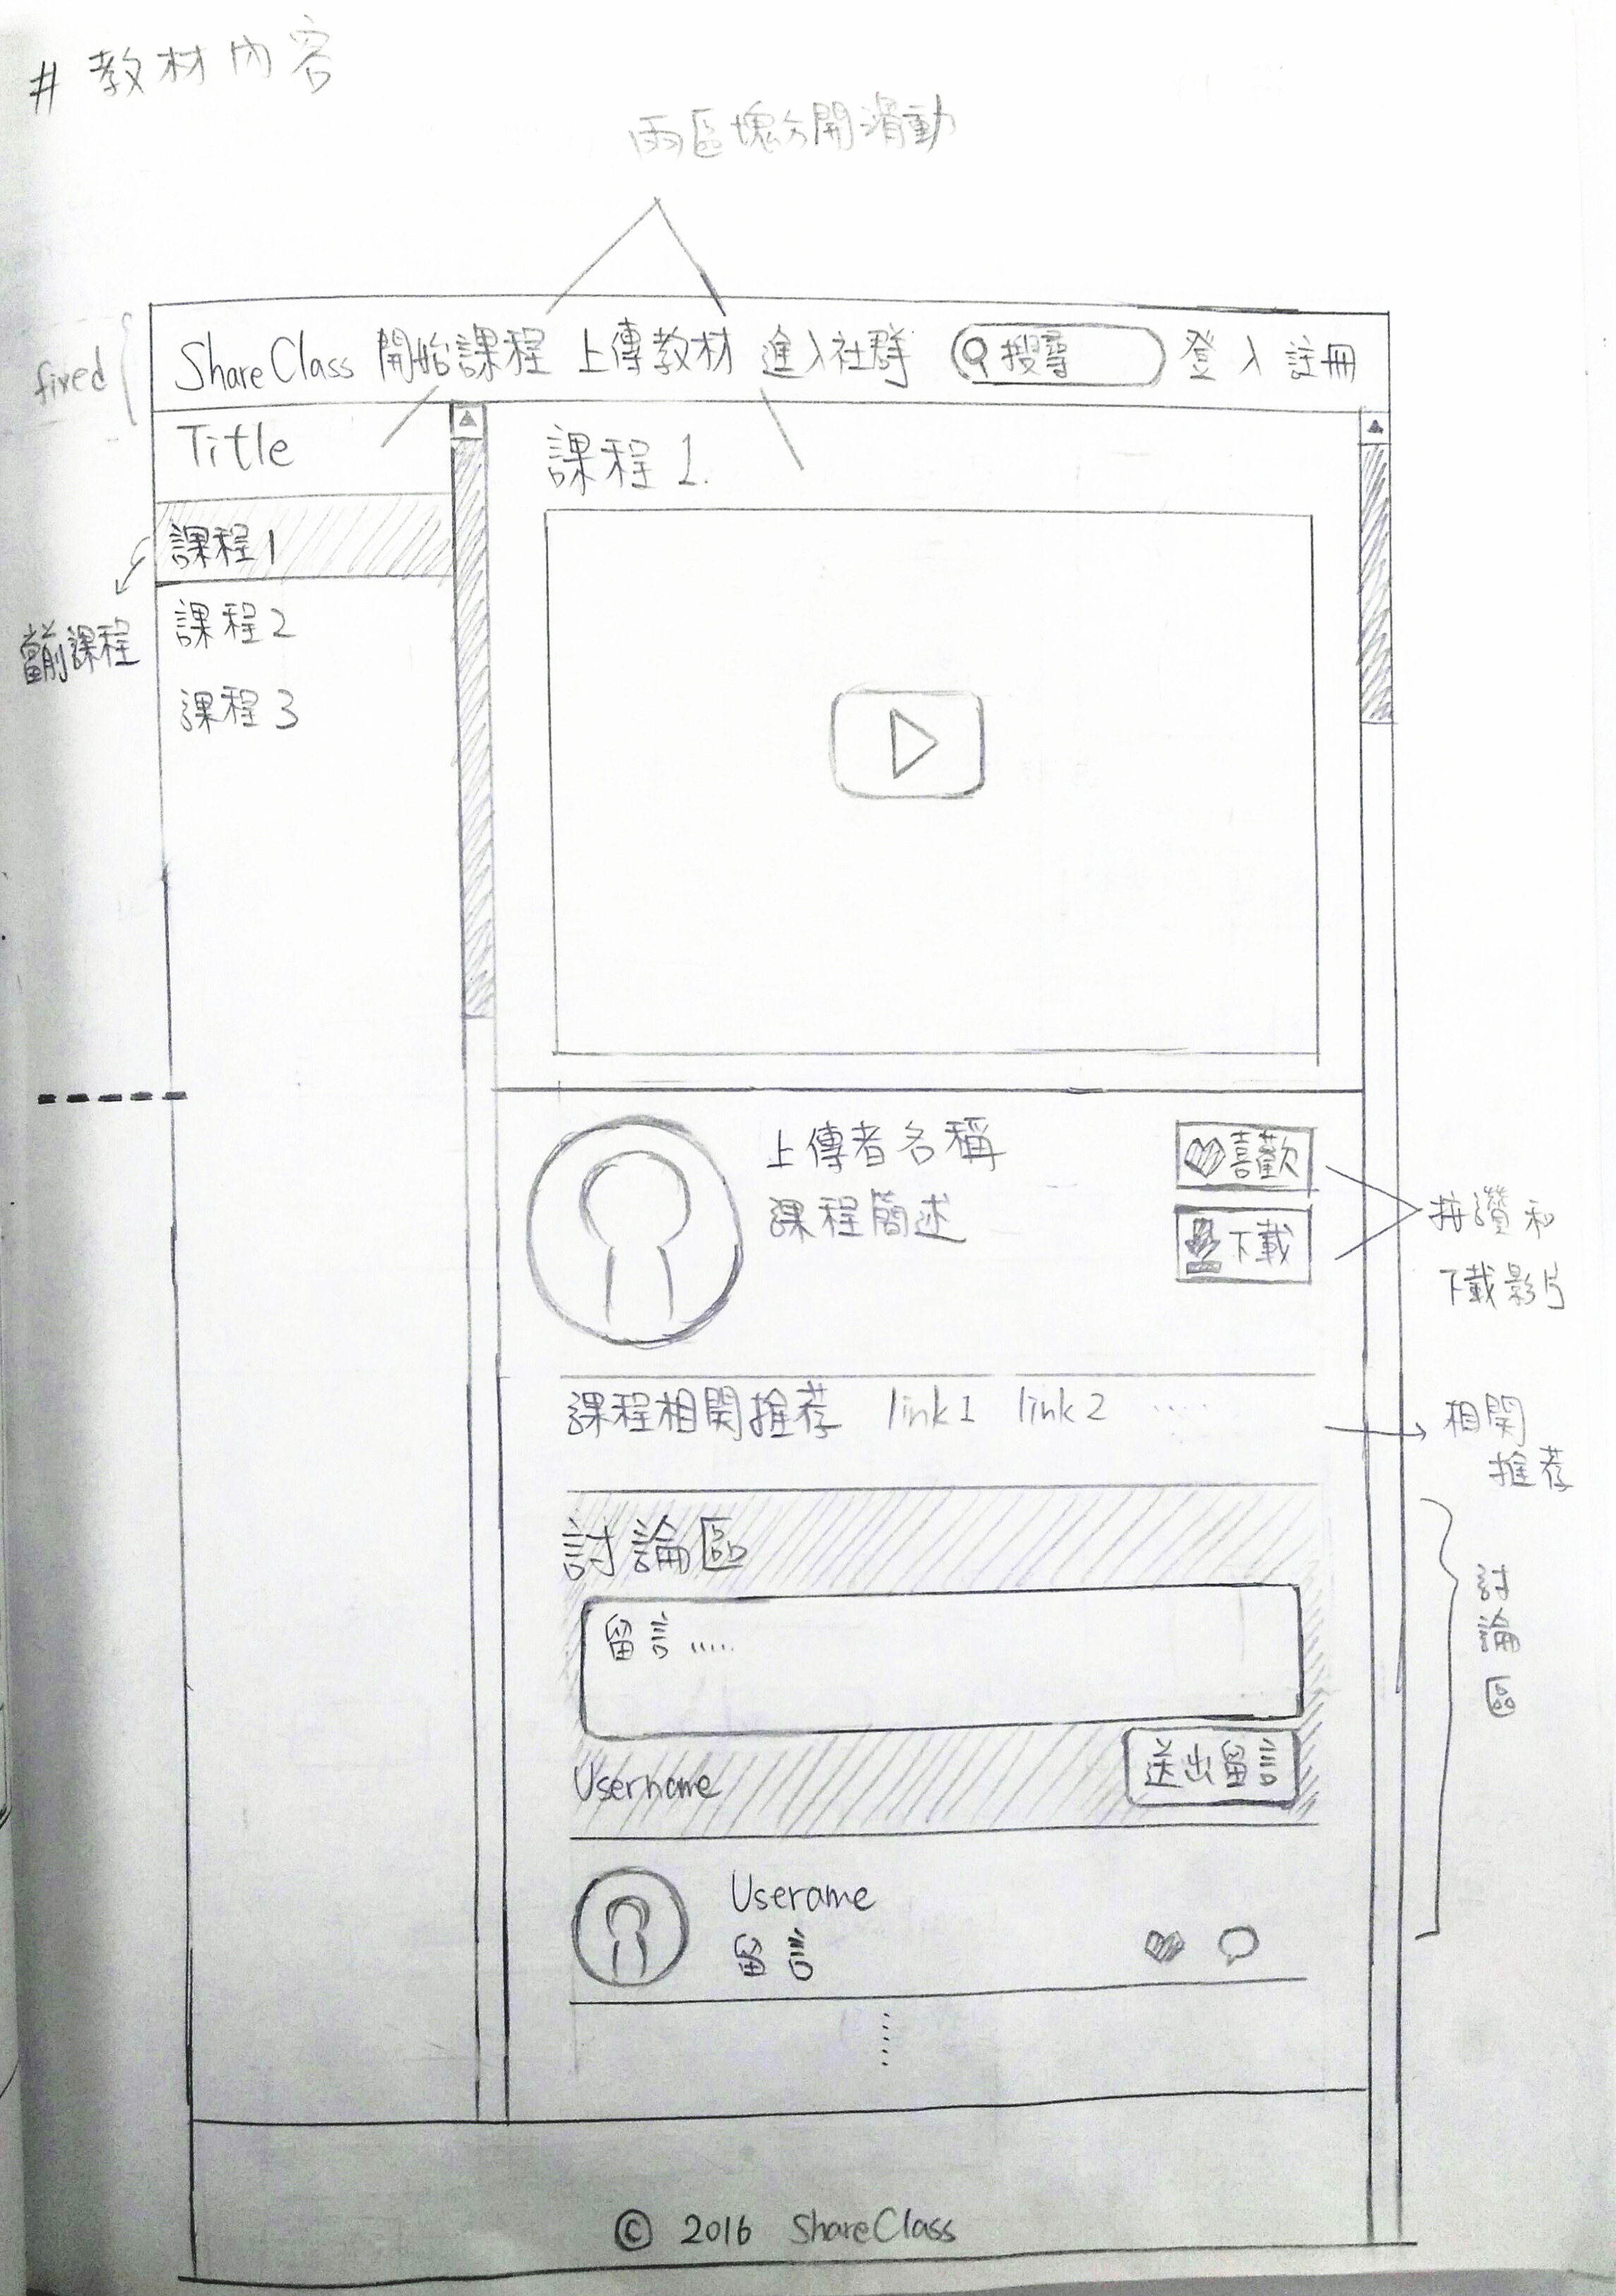 # 教材內容
兩區塊分開滑動
fixed
ShareClass 開始課程 上傳教材 進入社群 搜尋 登入 註冊
Title
課程 1.
課程1
當前課程
課程2
課程3
上傳者名稱
課程簡述
喜歡
下載
按讚和
下載影片
課程相関推荐 link1 link2 .....
相関
推荐
討論區
留言.....
Username
送出留言
討論區
Userame
留言
© 2016 ShareClass